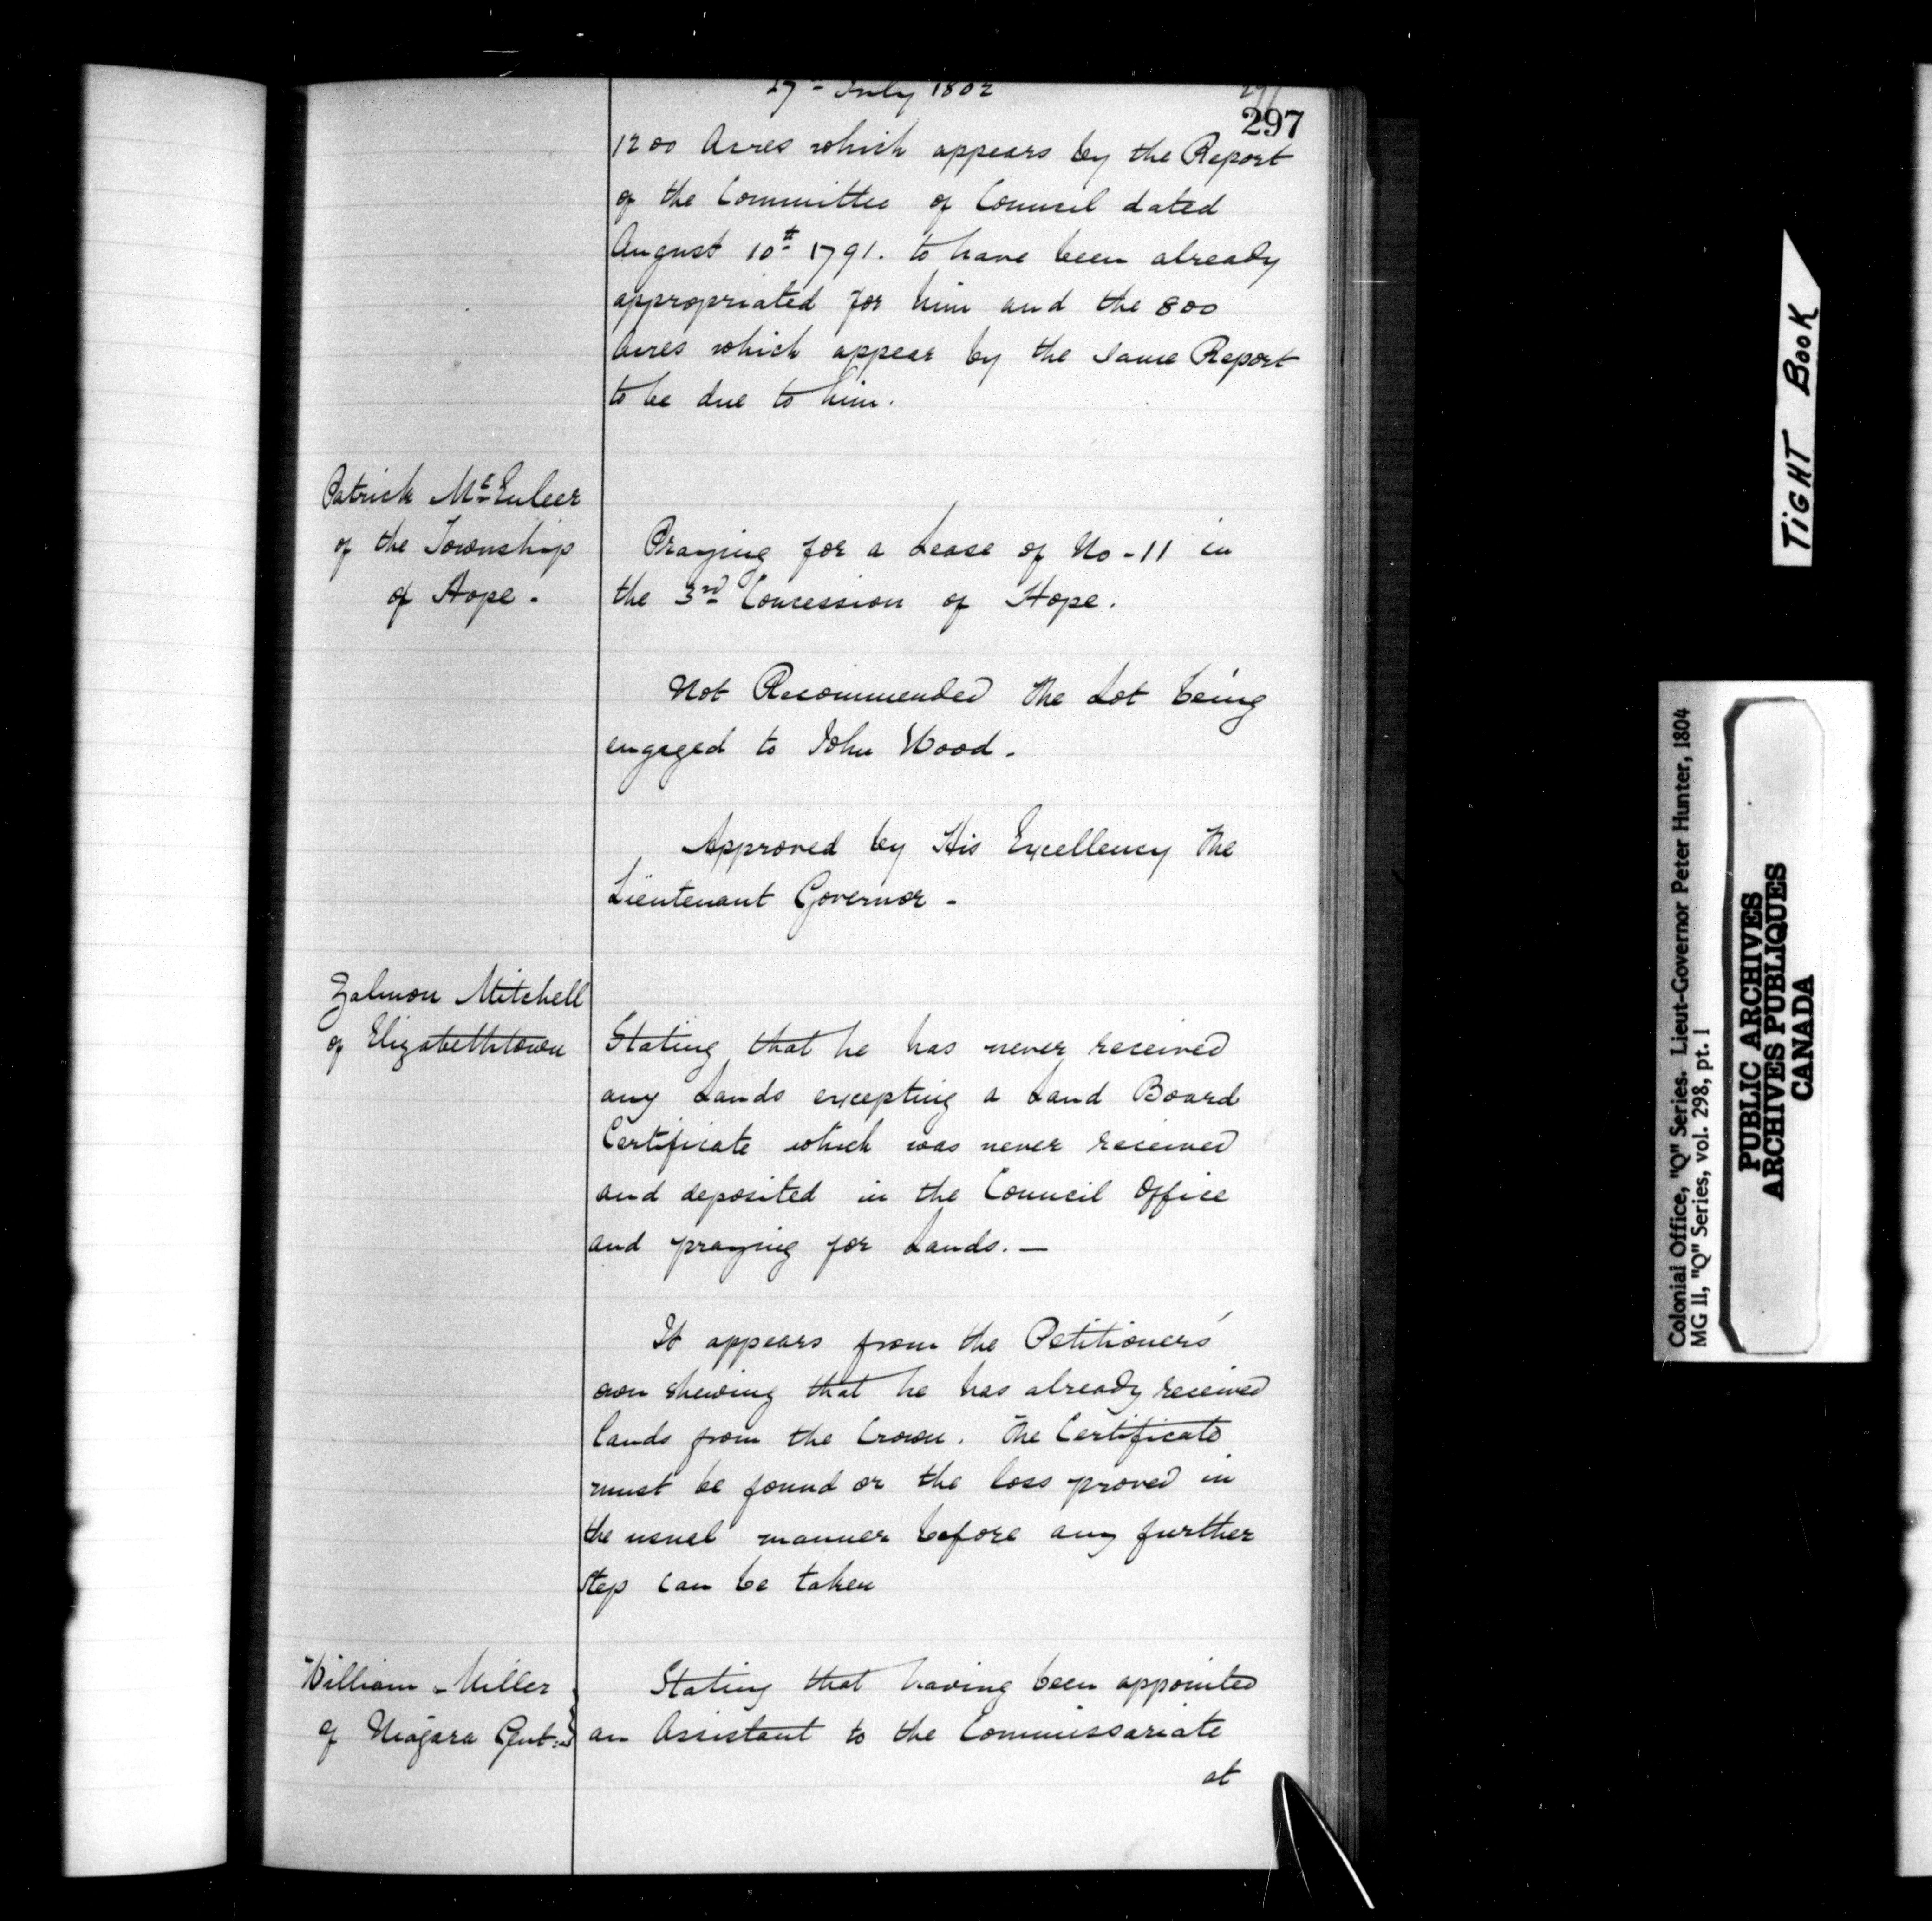 27th July 1802
297
1200 Acres which appears by the Report
of the Committee of Council dated
August 10th 1791. to have been already
appropriated for him and the 800
Acres which appear by the Same Report
to be due to him.
Patrick Mc
of the Township
of Hope.
Praying for a Lease of No-11 in
the 3rd Concession of Hope.
Not Recommended the Lot being
engaged to John Wood.
Approved by His Excellency The
Lieutenant Governor -
Zalmon Mitchell
of Elizabethtown
Stating that he has never received
any Lands excepting a Land Board
Certificate which was never received
and deposited in the Council Office
and praying for Lands. —
It appears from the Petitioners'
own shewing that he has already received
lands from the Crown. The Certificate
must be found or the loss proved in
the usual manner before any further
step can be taken
William Miller
of Niagara Gent:
Stating that having been appointed
an Assistant to the Commissariate
at
TIGHT BOOK
Colonial Office, "Q" Series. Lieut-Governor Peter Hunter, 1804
MG 11, "Q" Series, vol. 298, pt. 1
PUBLIC ARCHIVES
ARCHIVES PUBLIQUES
CANADA